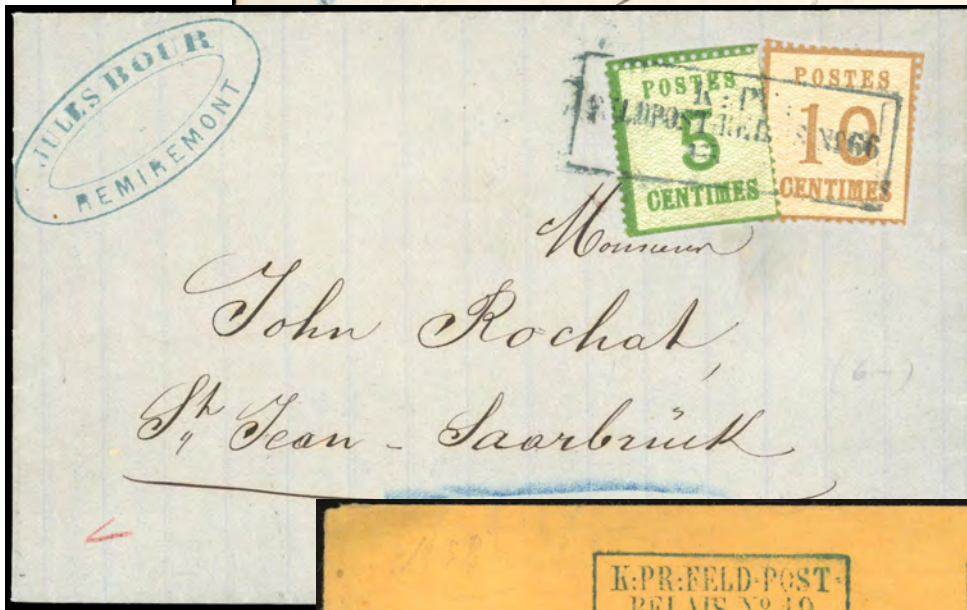 JULES BOUR
REMIREMONT
POSTES
5
CENTIMES
POSTES
10
CENTIMES
K: PR:
FELDPOST-RELAIS No 66
Monsieur
John Rochat,
St Jean - Saarbrück
K:PR:FELD-POST-
RELAIS No 49